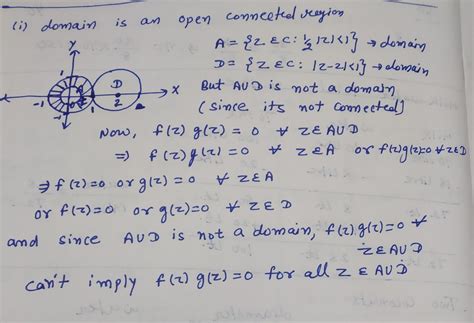 (i) domain is an open connected region
A = {z ε C: ½ |z|<1} → domain
D = {z ε C: |z-2|<1} → domain
But AUD is not a domain
(since its not connected)
y
1
D
-1
1
2
x
-1
Now, f(z) g(z) = 0 ∀ z ε AUD
⇒ f(z) g(z) = 0 ∀ z ε A or f(z)g(z)=0 ∀ z ε D
⇒ f(z)=0 or g(z) = 0 ∀ z ε A
or f(z)=0 or g(z)=0 ∀ z ε D
and since AUD is not a domain, f(z).g(z)=0 ∀
z ε AUD
can't imply f(z) g(z)=0 for all z ε AUD